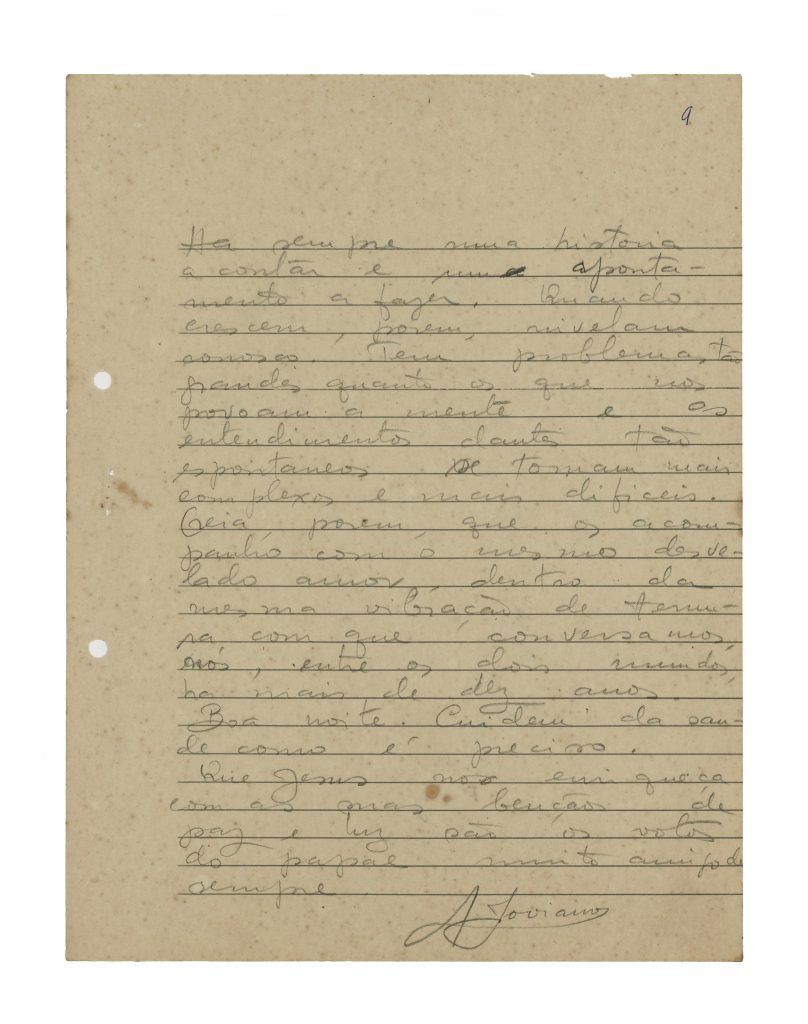 9
Ha sempre uma historia
a contar e um aponta-
mento a fazer. Quando
crescem, porem, nivelam
conosco. Tem problemas tão
grandes quanto os que nos
povoam a mente e os
entendimentos dantes tão
espontaneos se tornam mais
complexos e mais dificeis.
Creia, porem, que os acom-
panho com o mesmo desve-
lado amor, dentro da
mesma vibração de ternu-
ra com que conversamos,
nós, entre os dois mundos,
ha mais de dez anos.
Boa noite. Cuidem da sau-
de como é preciso.
Que Jesus nos enriqueça
com as suas bençãos de
paz e luz são os votos
do papae muito amigo de
sempre
A Joviano